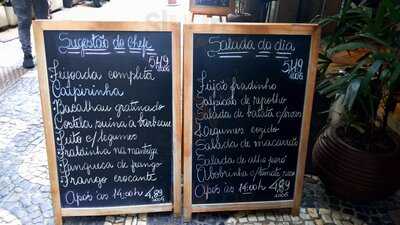 Sugestão do Chef
5,49
100G
Feijoada completa
Caipirinha
Bacalhau gratinado
Costela suína à barbecue
Frito c/legumes
Fraldinha na manteiga
Linguiça de frango
Frango crocante
Após às 14:00h 4,89
100G
Salada do dia
5,49
100G
Feijão fradinho
Salpicão de repolho
Salada de batata c/
Legumes cozido
Salada de macarrão
Salada de
Abobrinha c/tomate
Após às 14:00h 4,89
100G